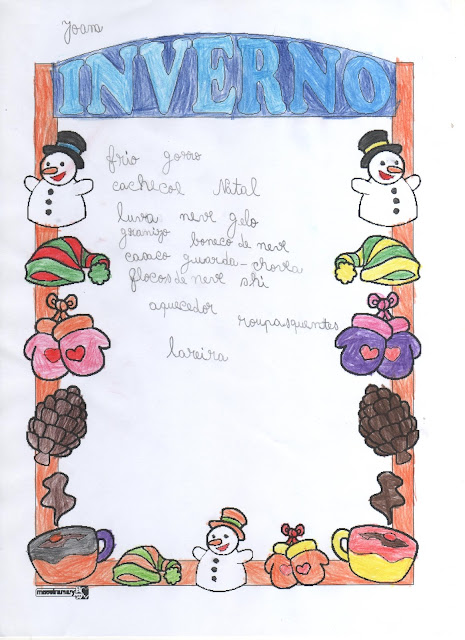 Joana
INVERNO
frio gorro
cachecol Natal
luva neve gelo
granizo boneco de neve
casaco guarda-chuva
flocos de neve ski
aquecedor
roupas quentes
lareira